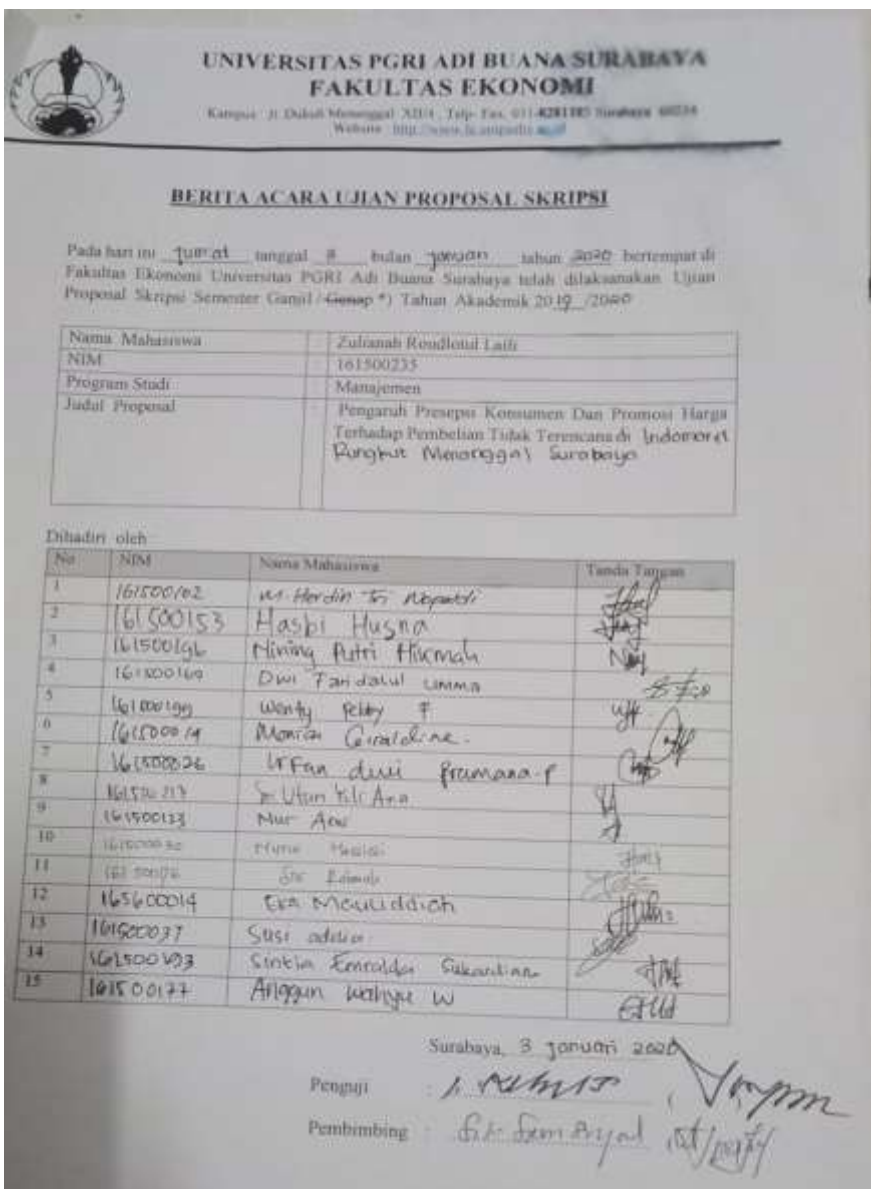 UNIVERSITAS PGRI ADI BUANA SURABAYA
FAKULTAS EKONOMI
Kampus : Jl. Dukuh Menanggal XII/4 , Telp- Fax. 031-8281183 Surabaya 60234
Website : http://www.fe.unipasby.ac.id
BERITA ACARA UJIAN PROPOSAL SKRIPSI
Pada hari ini Jum'at tanggal bulan Januari tahun 2020 bertempat di
Fakultas Ekonomi Universitas PGRI Adi Buana Surabaya telah dilaksanakan Ujian
Proposal Skripsi Semester Ganjil / Genap *) Tahun Akademik 2019 /2020
Nama Mahasiswa : Zulianah Roudlotul Laili
NIM : 161500235
Program Studi : Manajemen
Judul Proposal : Pengaruh Presepsi Konsumen Dan Promosi Harga
Terhadap Pembelian Tidak Terencana di Indomaret
Rungkut Menanggal Surabaya
Dihadiri oleh
No NIM Nama Mahasiswa Tanda Tangan
1 161500102 M. Herdin Tri
2 161500153 Hasbi Husna
3 Nining Putri Hikmah
4 161500169 Dwi Faridatul Umma
5 161500199 Wenty Febby F
6 161500019 Monica Geraldine.
7 161500026 Irfan dwi Pramana.P
8
9 161500123 Nur
10
11
12 165600014 Eka Mauliddiah
13 161500037 Susi
14 Sintia Emralda
15 161500177 Anggun Wahyu W
Surabaya, 3 Januari 2020
Penguji : 1.
Pembimbing :